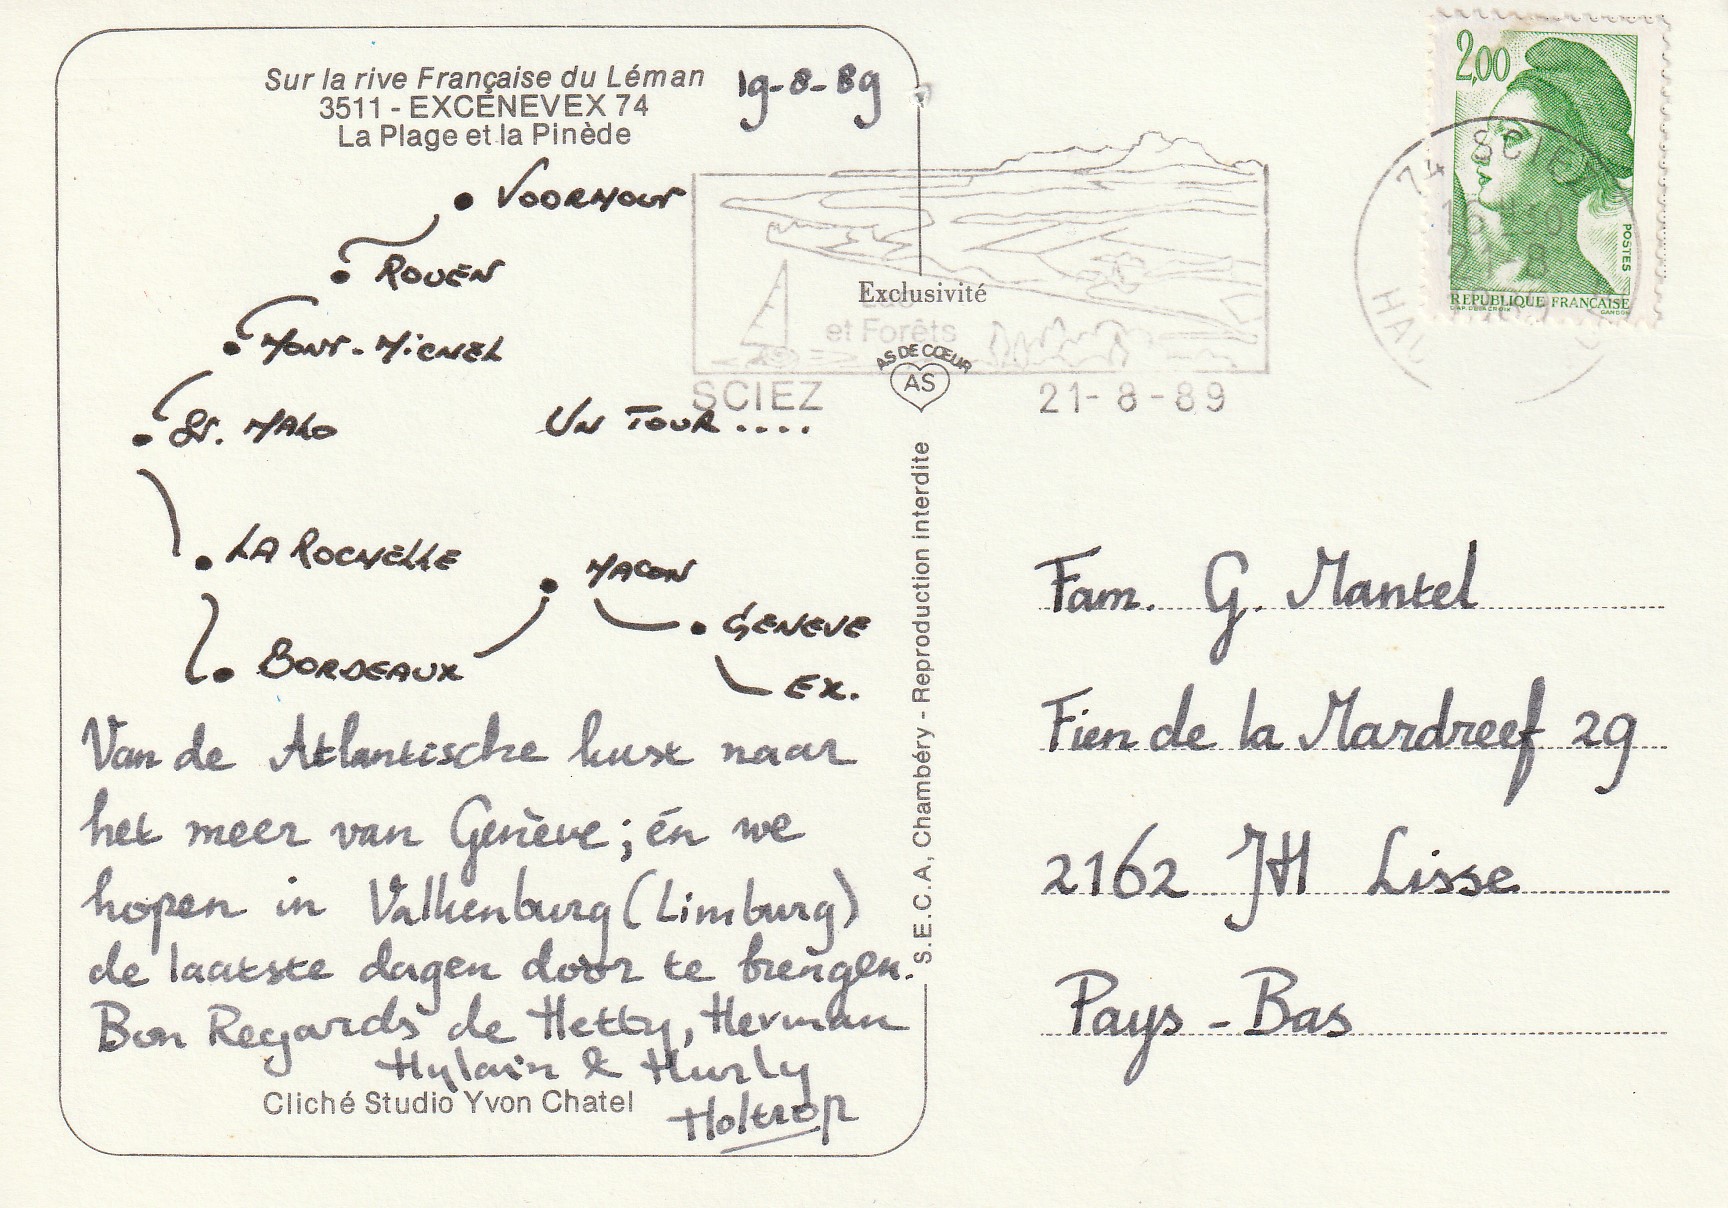 Sur la rive Française du Léman
3511 - EXCENEVEX 74
La Plage et la Pinède
19-8-89
VOORHOUT
ROUEN
MONT-MICHEL
ST. MALO
UN TOUR....
LA ROCHELLE
BORDEAUX
MACON
GENEVE
EX.
Van de Atlantische kust naar
het meer van Genève; én we
hopen in Valkenburg (Limburg)
de laatste dagen door te brengen.
Bon Regards de Hetty, Herman
Hylain & Hurly
Holtrop
Cliché Studio Yvon Chatel
Exclusivité
AS DE CŒUR
AS
S.E.C.A, Chambéry - Reproduction interdite
et Forêts
SCIEZ
21-8-89
2,00
POSTES
REPUBLIQUE FRANÇAISE
D'AP. DELACROIX
GANDON
74 SCIEZ
21 8
Fam. G. Mantel
Fien de la Mardreef 29
2162 JH Lisse
Pays-Bas